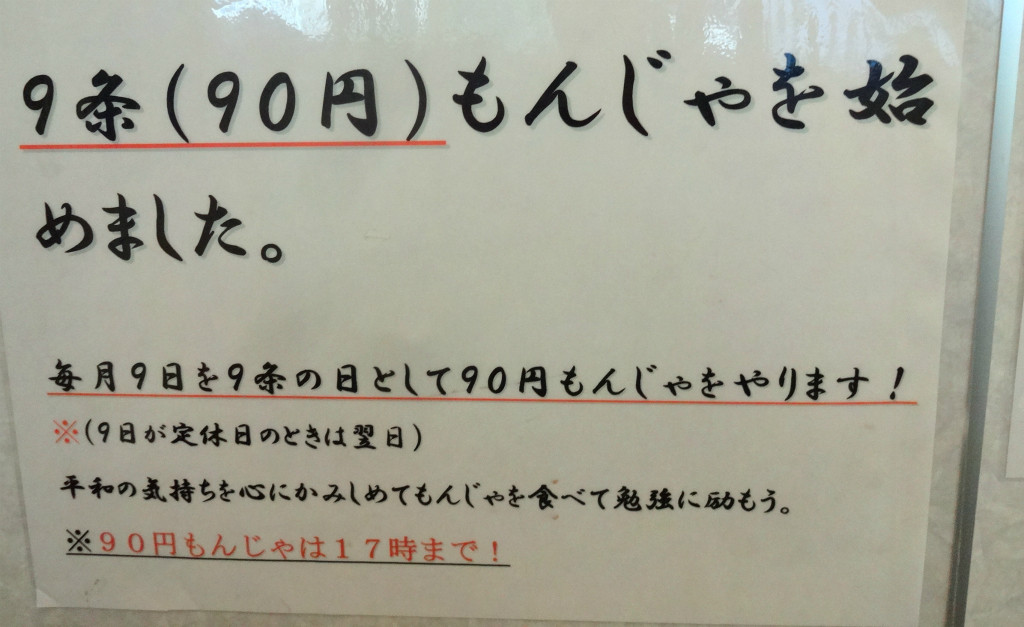 9条(90円)もんじゃを始
めました。
毎月9日を9条の日として90円もんじゃをやります！
※(9日が定休日のときは翌日)
平和の気持ちを心にかみしめてもんじゃを食べて勉強に励もう。
※９０円もんじゃは１７時まで！